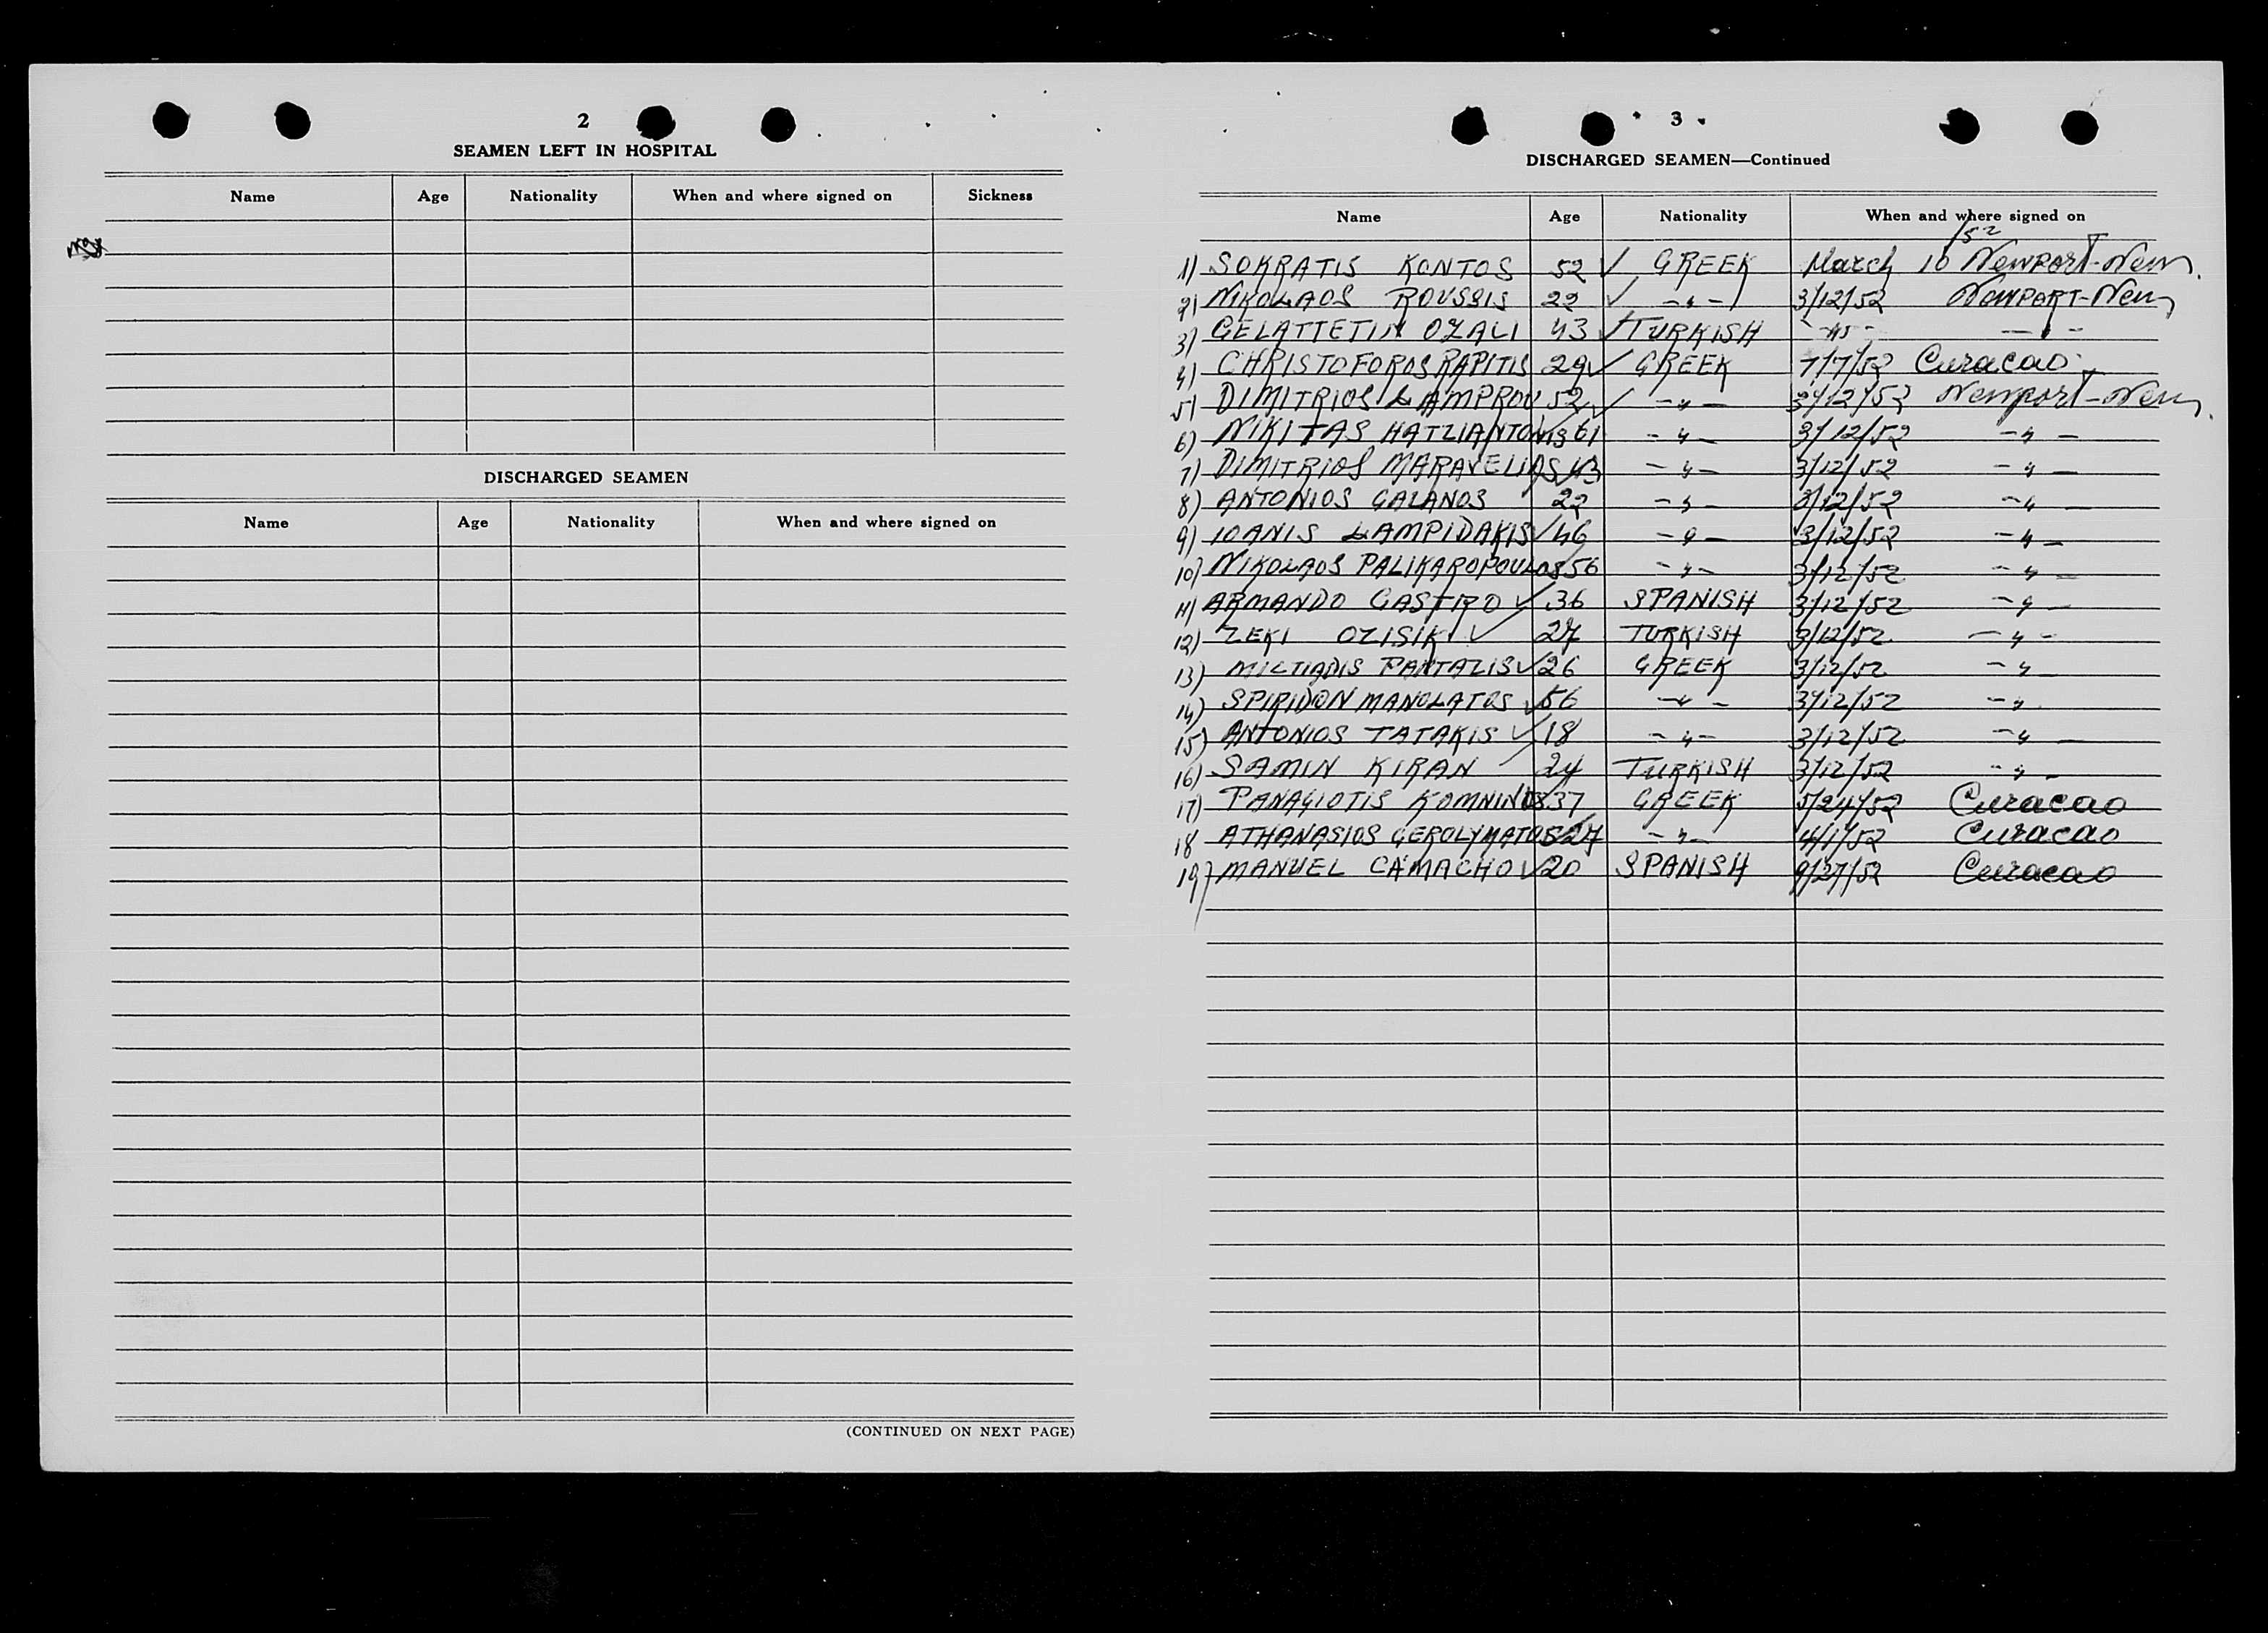 2
SEAMEN LEFT IN HOSPITAL
Name Age Nationality When and where signed on Sickness
DISCHARGED SEAMEN
Name Age Nationality When and where signed on
(CONTINUED ON NEXT PAGE)
3
DISCHARGED SEAMEN—Continued
Name Age Nationality When and where signed on
/52
1) SOKRATIS KONTOS 52 ✓ GREEK March 10 Newport-News.
2) NIKOLAOS ROUSSIS 22 ✓ -〃- 3/12/52 NewPORT-News
3) GELATTETIN OZALI 43 ✓ TURKISH -〃- -〃-
4) CHRISTOFOROS RAPITIS 29 ✓ GREEK 7/7/52 Curacao
5) DIMITRIOS LAMPROU 52 ✓ -〃- 3/12/52 Newport-News.
6) NIKITAS HATZIANTONIS 61 -〃- 3/12/52 -〃-
7) DIMITRIOS MARAVELIAS 43 -〃- 3/12/52 -〃-
8) ANTONIOS GALANOS 22 -〃- 3/12/52 -〃-
9) IOANIS LAMPIDAKIS ✓ 46 -〃- 3/12/52 -〃-
10) NIKOLAOS PALIKAROPOULOS 56 -〃- 3/12/52 -〃-
11) ARMANDO CASTRO ✓ 36 SPANISH 3/12/52 -〃-
12) ZEKI OZISIK ✓ 27 TURKISH 3/12/52 -〃-
13) MILTIADIS PANTAZIS ✓ 26 GREEK 3/12/52 -〃-
14) SPIRIDON MANOLATOS ✓ 56 -〃- 3/12/52 -〃-
15) ANTONIOS TATAKIS ✓ 18 -〃- 3/12/52 -〃-
16) SAMIN KIRAN 24 TURKISH 3/12/52 -〃-
17) PANAGIOTIS KOMNINOS 37 GREEK 5/24/52 Curacao
18 ATHANASIOS GEROLYMATOS 27 -〃- 4/1/52 Curacao
19) MANUEL CAMACHO ✓ 20 SPANISH 9/27/52 Curacao